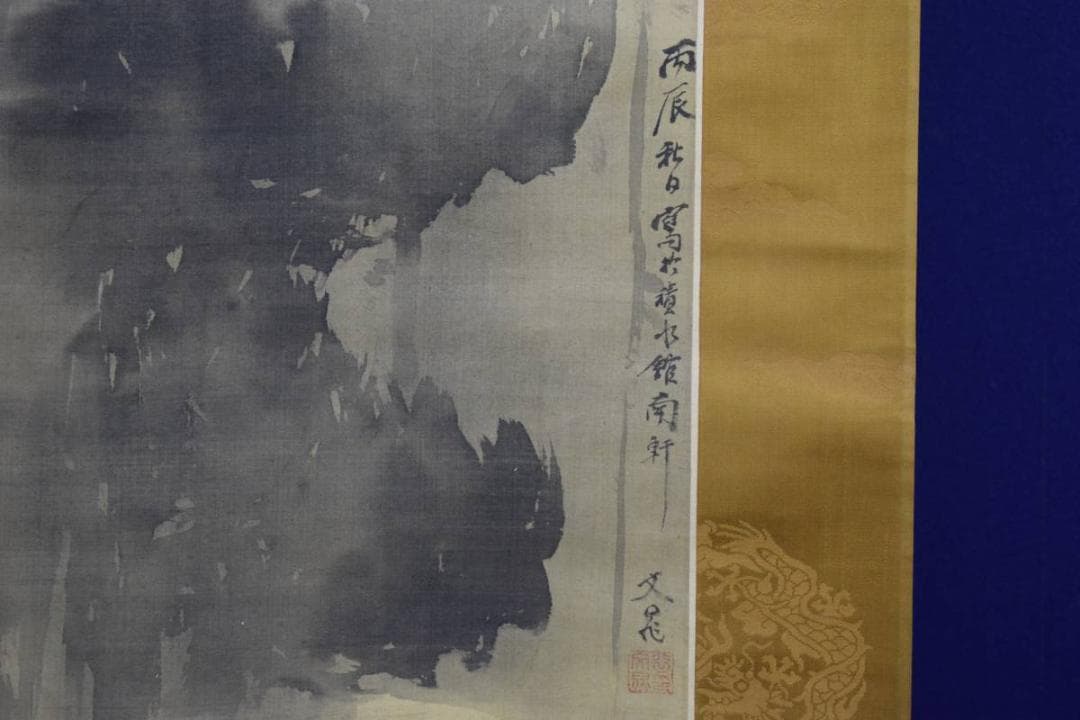 丙辰秋日寫於積水館南軒
文晁